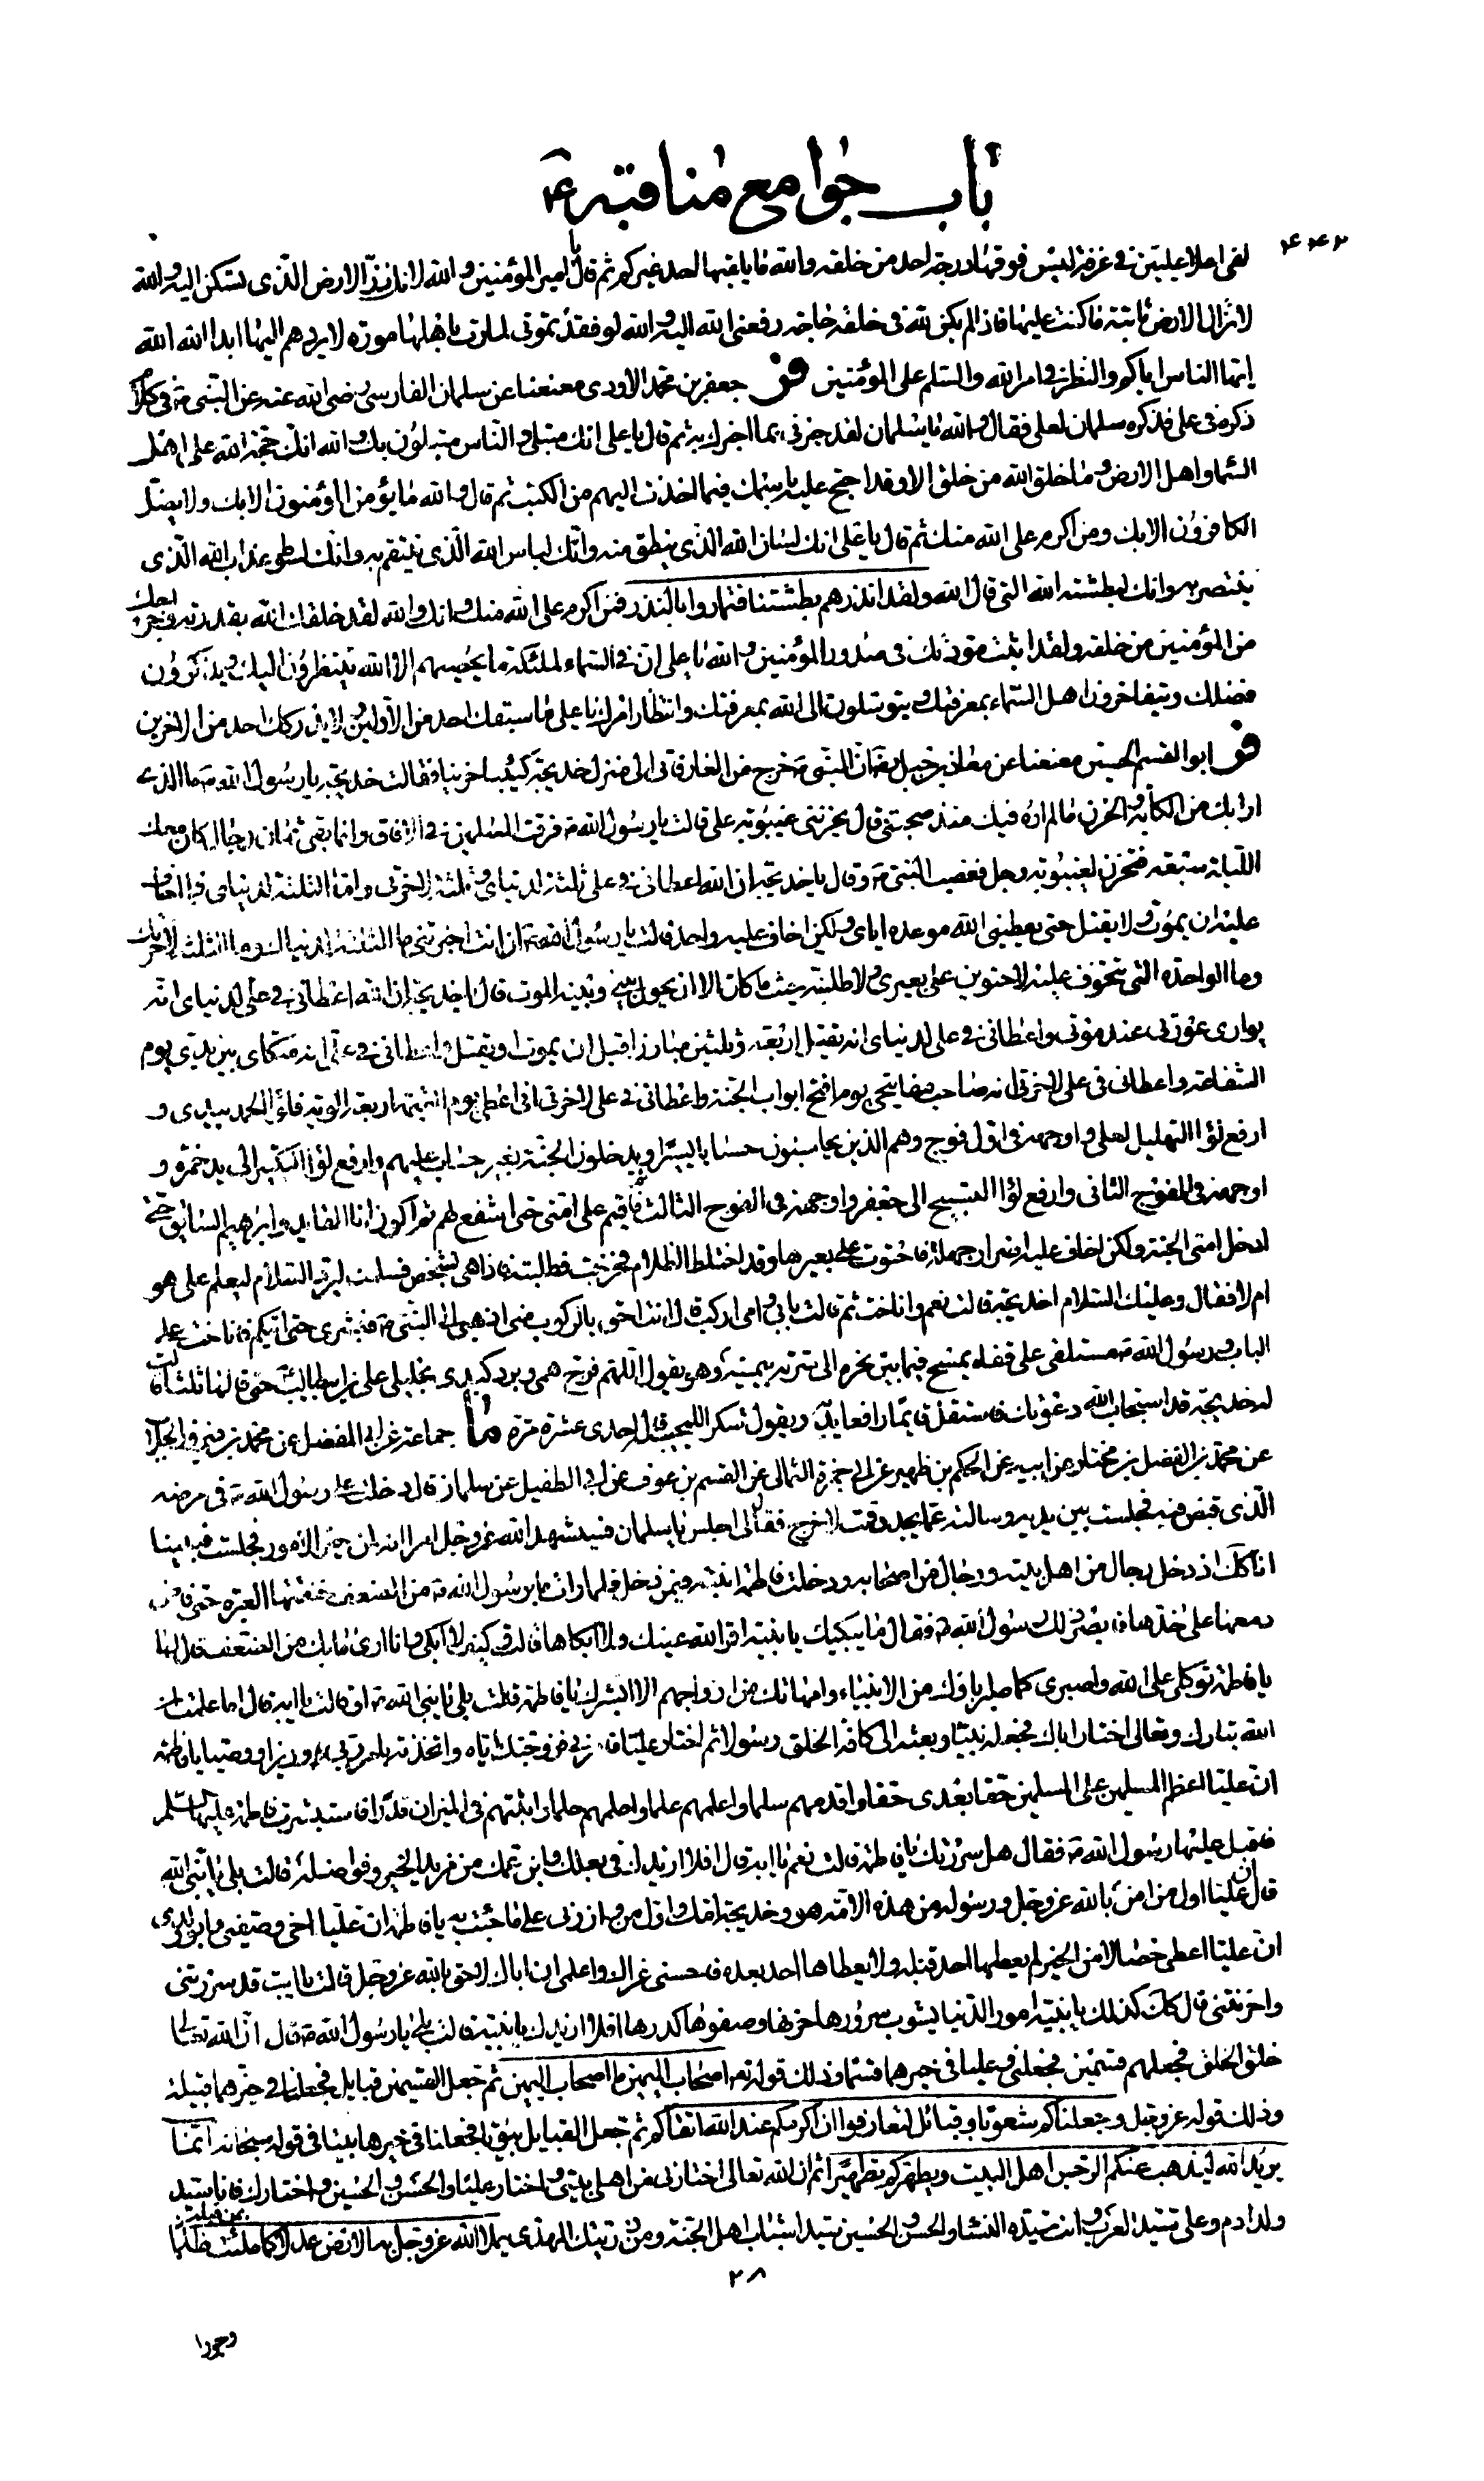 باب جوامع مناقبه ع
۴۴۲
لفى اعلا عليين فى غرفة ليس فوقها درجة احد من خلقه والله ما يا بلغها احد غيركم ثم قال امير المؤمنين و الله لانا زر الارض الذى تسكن اليه و الله
لا تزال الارض ثابتة ما كنت عليها فاذا لم يكن لله فى خلقه حاجة رفعنى الله اليه والله لو فقدتمونى لمارت باهلها مورة لا يردهم اليها ابدا الله الله
ايها الناس اياكم والنظر فى امر الله والسلم على المؤمنين فر جعفر بن محمد الاودى معنعنا عن سلمان الفارسى رضى الله عنه عن النبى ص فى كلام
ذكره فى على فذكره سلمان لعلى فقال والله يا سلمان لقد خبرنى بما اخبرك به ثم قال يا على انك مبتلى و الناس مبتلون بك والله انك حجة الله على اهل
السماء واهل الارض وما خلق الله من خلق الا وقد احتج عليه باسمك فيما اخذت اليهم من الكتب ثم قال والله ما يؤمن المؤمنون الا بك ولا يضل
الكافرون الا بك ومن اكرم على الله منك ثم قال يا على انك لسان الله الذى ينطق منه وانك لباس الله الذى ينتقم به وانك لسوط عذاب الله الذى
ينتصر به وانك لبطشة الله التى قال الله ولقد انذرهم بطشتنا فتماروا بالنذر فمن اكرم على الله منك وانك والله لقد خلقك الله بقدرته واخرجك
من المؤمنين من خلقه ولقد اثبت مودتك فى صدور المؤمنين والله يا على ان فى السماء لملئكة ما يحصيهم الا الله ينتظرون اليك ويذكرون
فضلك ويتفاخرون اهل السماء بمعرفتك ويتوسلون الى الله بمعرفتك وانتظار امرك يا على ما سبقك احد من الاولين ولا يدركك احد من الاخرين
فر ابو القسم الحسنى معنعنا عن معاذ بن جبل رض ان النبى ص خرج من الغار فاتى الى منزل خديجة كئيبا حزينا فقالت خديجة يا رسول الله ص ما الذى
ارى بك من الكآبة والحزن ما لم اره فيك منذ صحبتنى قال يحزننى غيبوبة على قالت يا رسول الله ص فرقت المسلمين فى الافاق وانما بقى ثمان رجال كان معك
الليلة سبعة فتحزن لغيبوبة رجل فغضب النبى ص وقال يا خديجة ان الله اعطانى فى على ثلثة لدنياى وثلثة لاخرتى واما الثلثة لدنياى فما اخاف
عليه ان يموت ولا يقتل حتى يعطينى الله موعده اياى ولكن اخاف عليه واحدة قالت يا رسول الله ص ان انت اخبرتنى ما الثلثة لدنياك وما الثلث لاخرتك
وما الواحدة التى تتخوف عليه لاحتوين على بعيرى ولاطلبنه حيث ما كان الا ان يحول بينى وبينه الموت قال يا خديجة ان الله اعطانى فى على لدنياى انه
يوارى عورتى عند موتى واعطانى فى على لدنياى انه يقتل اربعة وثلثين مبارزا قبل ان يموت او يقتل واعطانى فى على انه متكاى بين يدى يوم
الشفاعة واعطانى فى على لاخرتى انه صاحب مفاتيحى يوم افتح ابواب الجنة واعطانى فى على لاخرتى انى اعطى يوم القيمة اربعة الوية فلواء الحمد بيدى و
ارفع لواء التهليل لعلى واوجهه فى اول فوج وهم الذين يحاسبون حسابا يسيرا ويدخلون الجنة بغير حساب عليهم وارفع لواء التكبير الى يد حمزة و
اوجهه فى الفوج الثانى وارفع لواء التسبيح الى جعفر واوجهه فى الفوج الثالث ثم اقيم على امتى حتى اشفع لهم ثم اكون انا القائد وابرهيم السائق حتى
ادخل امتى الجنة ولكن اخاف عليه اضرار جهلة فاحتوت على بعيرها وقد اختلط الظلام فخرجت فطلبته فاذا هى بشخص فسلمت ليرد السلام ليعلم على هو
ام لا فقال وعليك السلام اخديجة قالت نعم واناخت ثم قالت بابى وامى اركب قال انت احق بالركوب منى اذهبى الى النبى ص فبشرى حتى اتيكم فاناخت على
الباب ورسول الله ص مستلقى على قفاه يمسح فيما بين نحره الى سرته بيمينه وهو يقول اللهم فرج همى وبرد كبدى بخليلى على بن ابيطالب حتى قالها ثلثا قالت
له خديجة قد استجاب الله دعوتك فاستقل قائما رافعا يديه ويقول شكرا للمجيب قاله احدى عشرة مرة ما جماعة عن ابى المفضل عن محمد بن فيروز الجلاب
عن محمد بن الفضل بن مختار عن ابيه عن الحكم بن ظهير عن ابى حمزة الثمالى عن القسم بن عوف عن ابى الطفيل عن سلمان قال دخلت على رسول الله ص فى مرضه
الذى قبض فيه فجلست بين يديه وسالته عما يجد وقمت لاخرج فقال لى اجلس يا سلمان فسيشهدك الله عز وجل امرا انه لمن خير الامور فجلست فبينا
انا كك اذ دخل رجال من اهل بيته ورجال من اصحابه ودخلت فاطمة ابنته فيمن دخل فلما رات ما برسول الله ص من الضعف خنقتها العبرة حتى فاض
دمعها على خدها فابصر ذلك رسول الله ص فقال ما يبكيك يا بنية اقر الله عينك ولا ابكاها قالت وكيف لا ابكى وانا ارى ما بك من الضعف قال لها
يا فاطمة توكلى على الله واصبرى كما صبر اباؤك من الانبياء وامهاتك من ازواجهم الا ابشرك يا فاطمة قالت بلى يا نبى الله ص او قالت يا ابه قال اما علمت ان
الله تبارك وتعالى اختار اباك فجعله نبيا وبعثه الى كافة الخلق رسولا ثم اختار عليا فامرنى فزوجتك اياه واتخذته بامر ربى وزيرا ووصيا يا فاطمة
ان عليا اعظم المسلمين على المسلمين حقا بعدى حقا واقدمهم سلما واعلمهم علما واحلمهم حلما واثبتهم فى الميزان قدرا فاستبشرت فاطمة عليها السلم
فاقبل عليها رسول الله ص فقال هل سررتك يا فاطمة قالت نعم يا ابه قال افلا ازيدك فى بعلك وابن عمك من مزيد الخير وفواضله قالت بلى يا نبى الله
قال ان عليا اول من امن بالله عز وجل ورسوله من هذه الامة هو وخديجة امك واول من وازرنى على ما جئت به يا فاطمة ان عليا اخى وصفيى وابو ولدى
ان عليا اعطى خصالا من الخير لم يعطها احد قبله ولا يعطاها احد بعده فاحسنى عزاك واعلمى ان اباك لاحق بالله عز وجل قالت يا ابت قد سررتنى
واحزنتنى قال كك كذلك يا بنية امور الدنيا يشوب سرورها حزنها وصفوها كدرها افلا ازيدك يا بنية قالت بلى يا رسول الله ص قال ان الله تعالى
خلق الخلق فجعلهم قسمين فجعلنى وعليا فى خيرهما قسما وذلك قوله تع اصحاب اليمين ما اصحاب اليمين ثم جعل القسمين قبايل فجعلنا فى خيرهما قبيلة
وذلك قوله عز وجل وجعلناكم شعوبا وقبائل لتعارفوا ان اكرمكم عند الله اتقاكم ثم جعل القبايل بيوتا فجعلنا فى خيرها بيتا فى قوله سبحانه انما
يريد الله ليذهب عنكم الرجس اهل البيت ويطهركم تطهيرا ثم ان الله تعالى اختارنى من اهل بيتى واختار عليا والحسن والحسين واختارك فانا سيد
ولد ادم وعلى سيد العرب وانت سيدة النساء والحسن والحسين سيدا شباب اهل الجنة ومن ذريتك المهدى يملا الله عز وجل به الارض عدلا كما ملئت بمن قبله ظلما
۲۸
وجورا